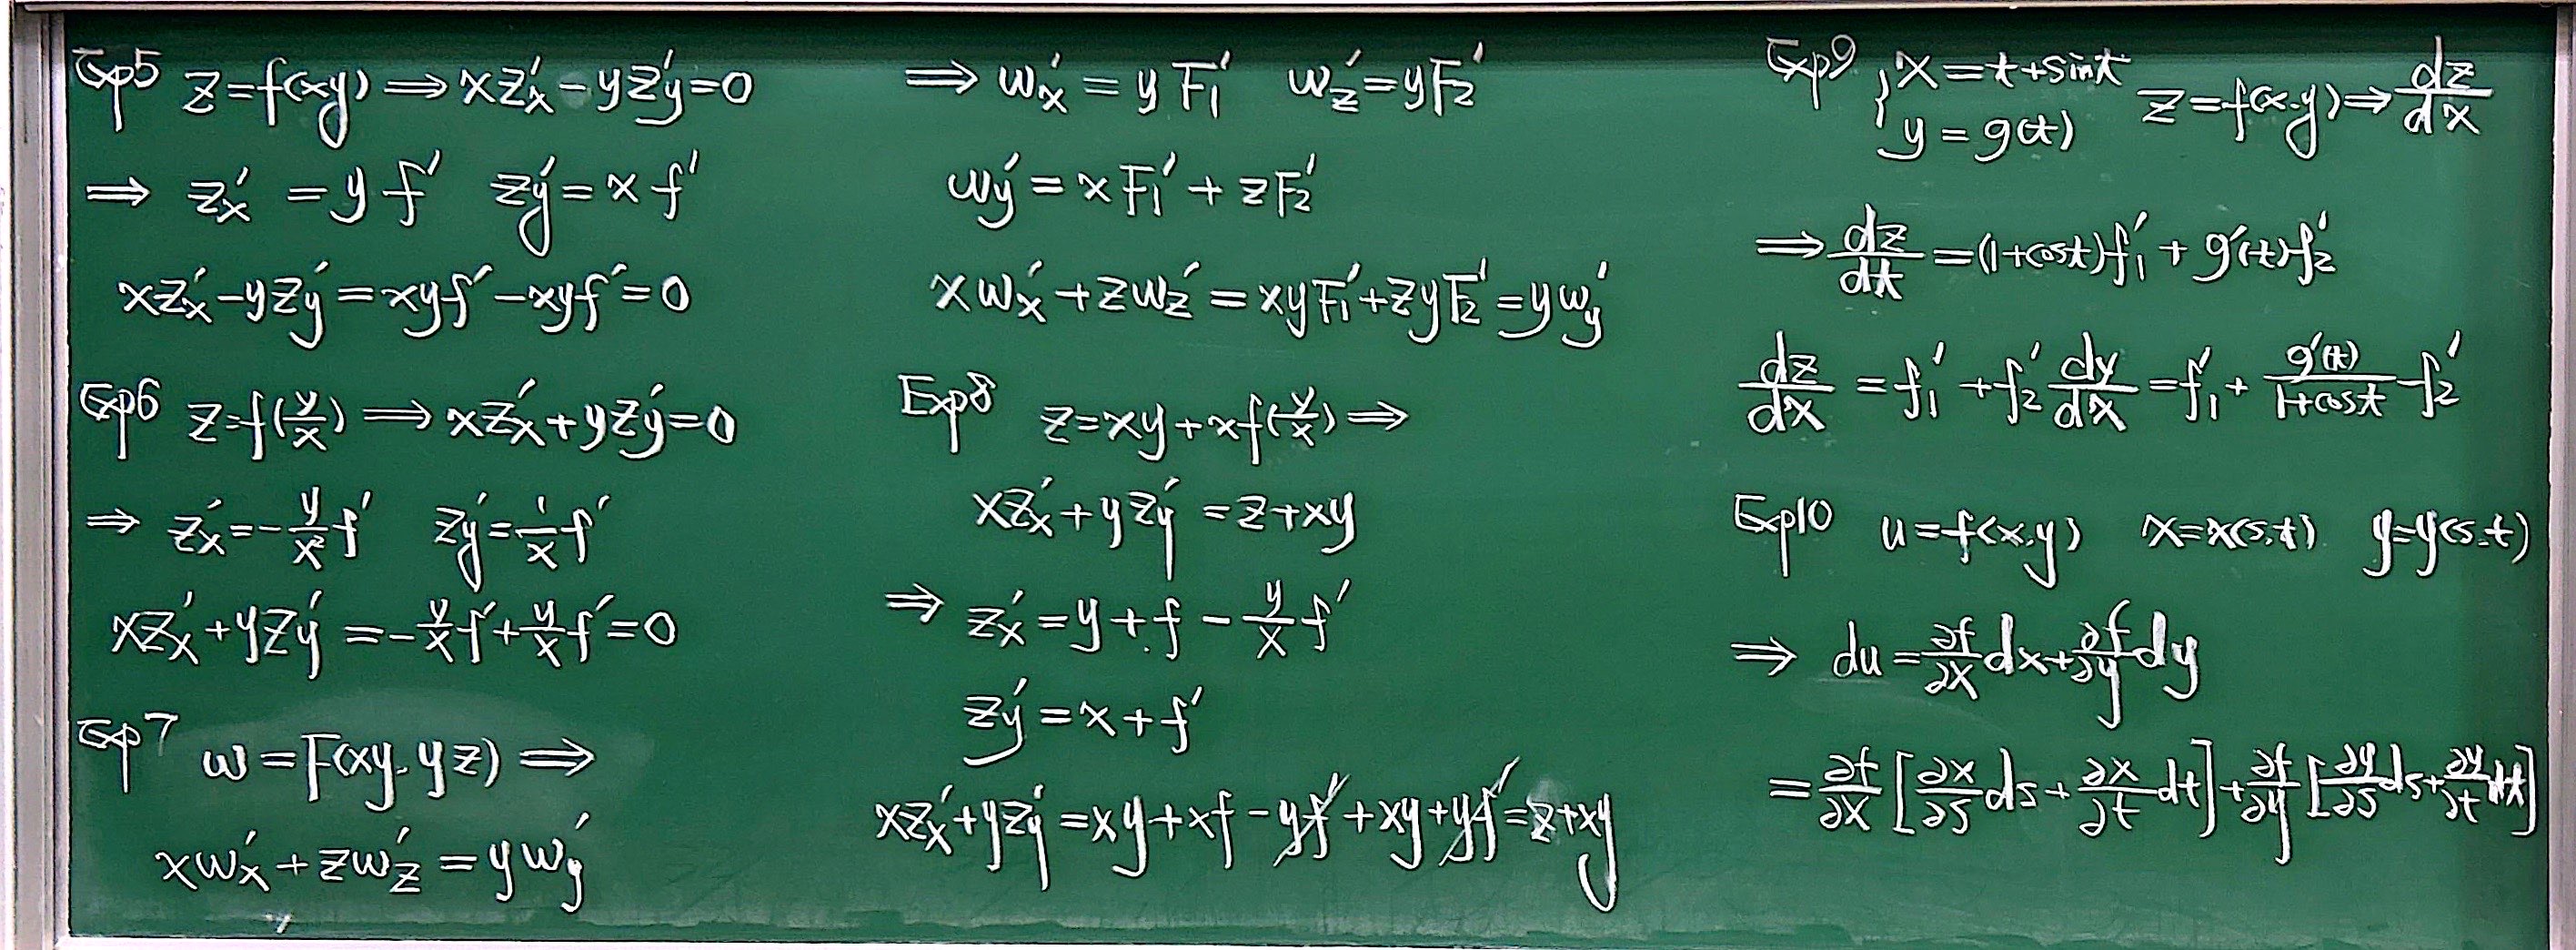 Exp5 z=f(xy) ⟹ xz'x - yz'y = 0
⟹ z'x = y f' z'y = x f'
xz'x - yz'y = xyf' - xyf' = 0
Exp6 z=f(y/x) ⟹ xz'x + yz'y = 0
⟹ z'x = -y/x² f' z'y = 1/x f'
xz'x + yz'y = -y/x f' + y/x f' = 0
Exp7 w = F(xy, yz) ⟹
xw'x + zw'z = yw'y
⟹ w'x = yF1' w'z = yF2'
w'y = xF1' + zF2'
xw'x + zw'z = xyF1' + zyF2' = yw'y
Exp8 z = xy + xf(y/x) ⟹
xz'x + yz'y = z + xy
⟹ z'x = y + f - y/x f'
z'y = x + f'
xz'x + yz'y = xy + xf - yf' + xy + yf' = z + xy
Exp9 { x = t + sint
y = g(t) z = f(x,y) ⟹ dz/dx
⟹ dz/dt = (1+cost)f1' + g'(t)f2'
dz/dx = f1' + f2' dy/dx = f1' + g'(t)/(1+cost) f2'
Exp10 u = f(x,y) x = x(s,t) y = y(s,t)
⟹ du = ∂f/∂x dx + ∂f/∂y dy
= ∂f/∂x [∂x/∂s ds + ∂x/∂t dt] + ∂f/∂y [∂y/∂s ds + ∂y/∂t dt]